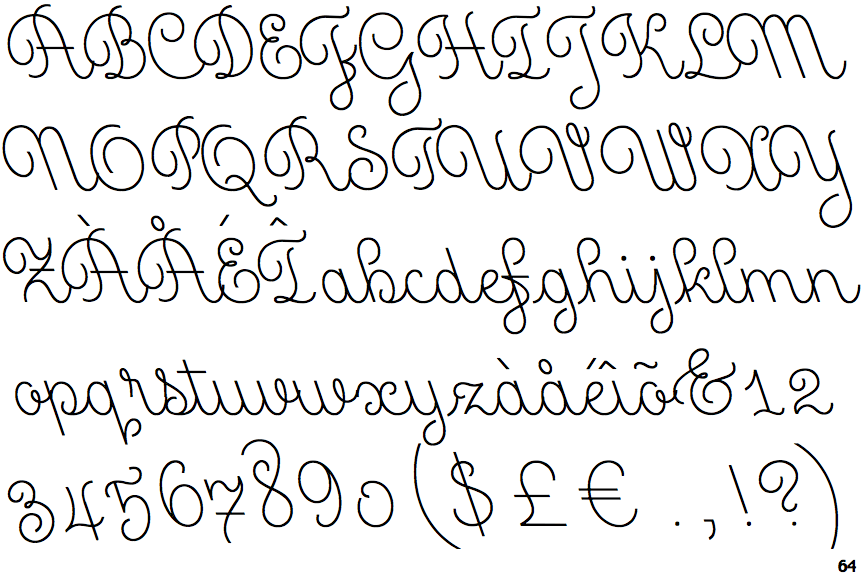 ABCDEFGHIJKLM
NOPQRSTUVWXY
ZÀÅÉÎabcdefghijklmn
opqrstuvwxyzàåéîõ&12
34567890($£€.,!?)
64